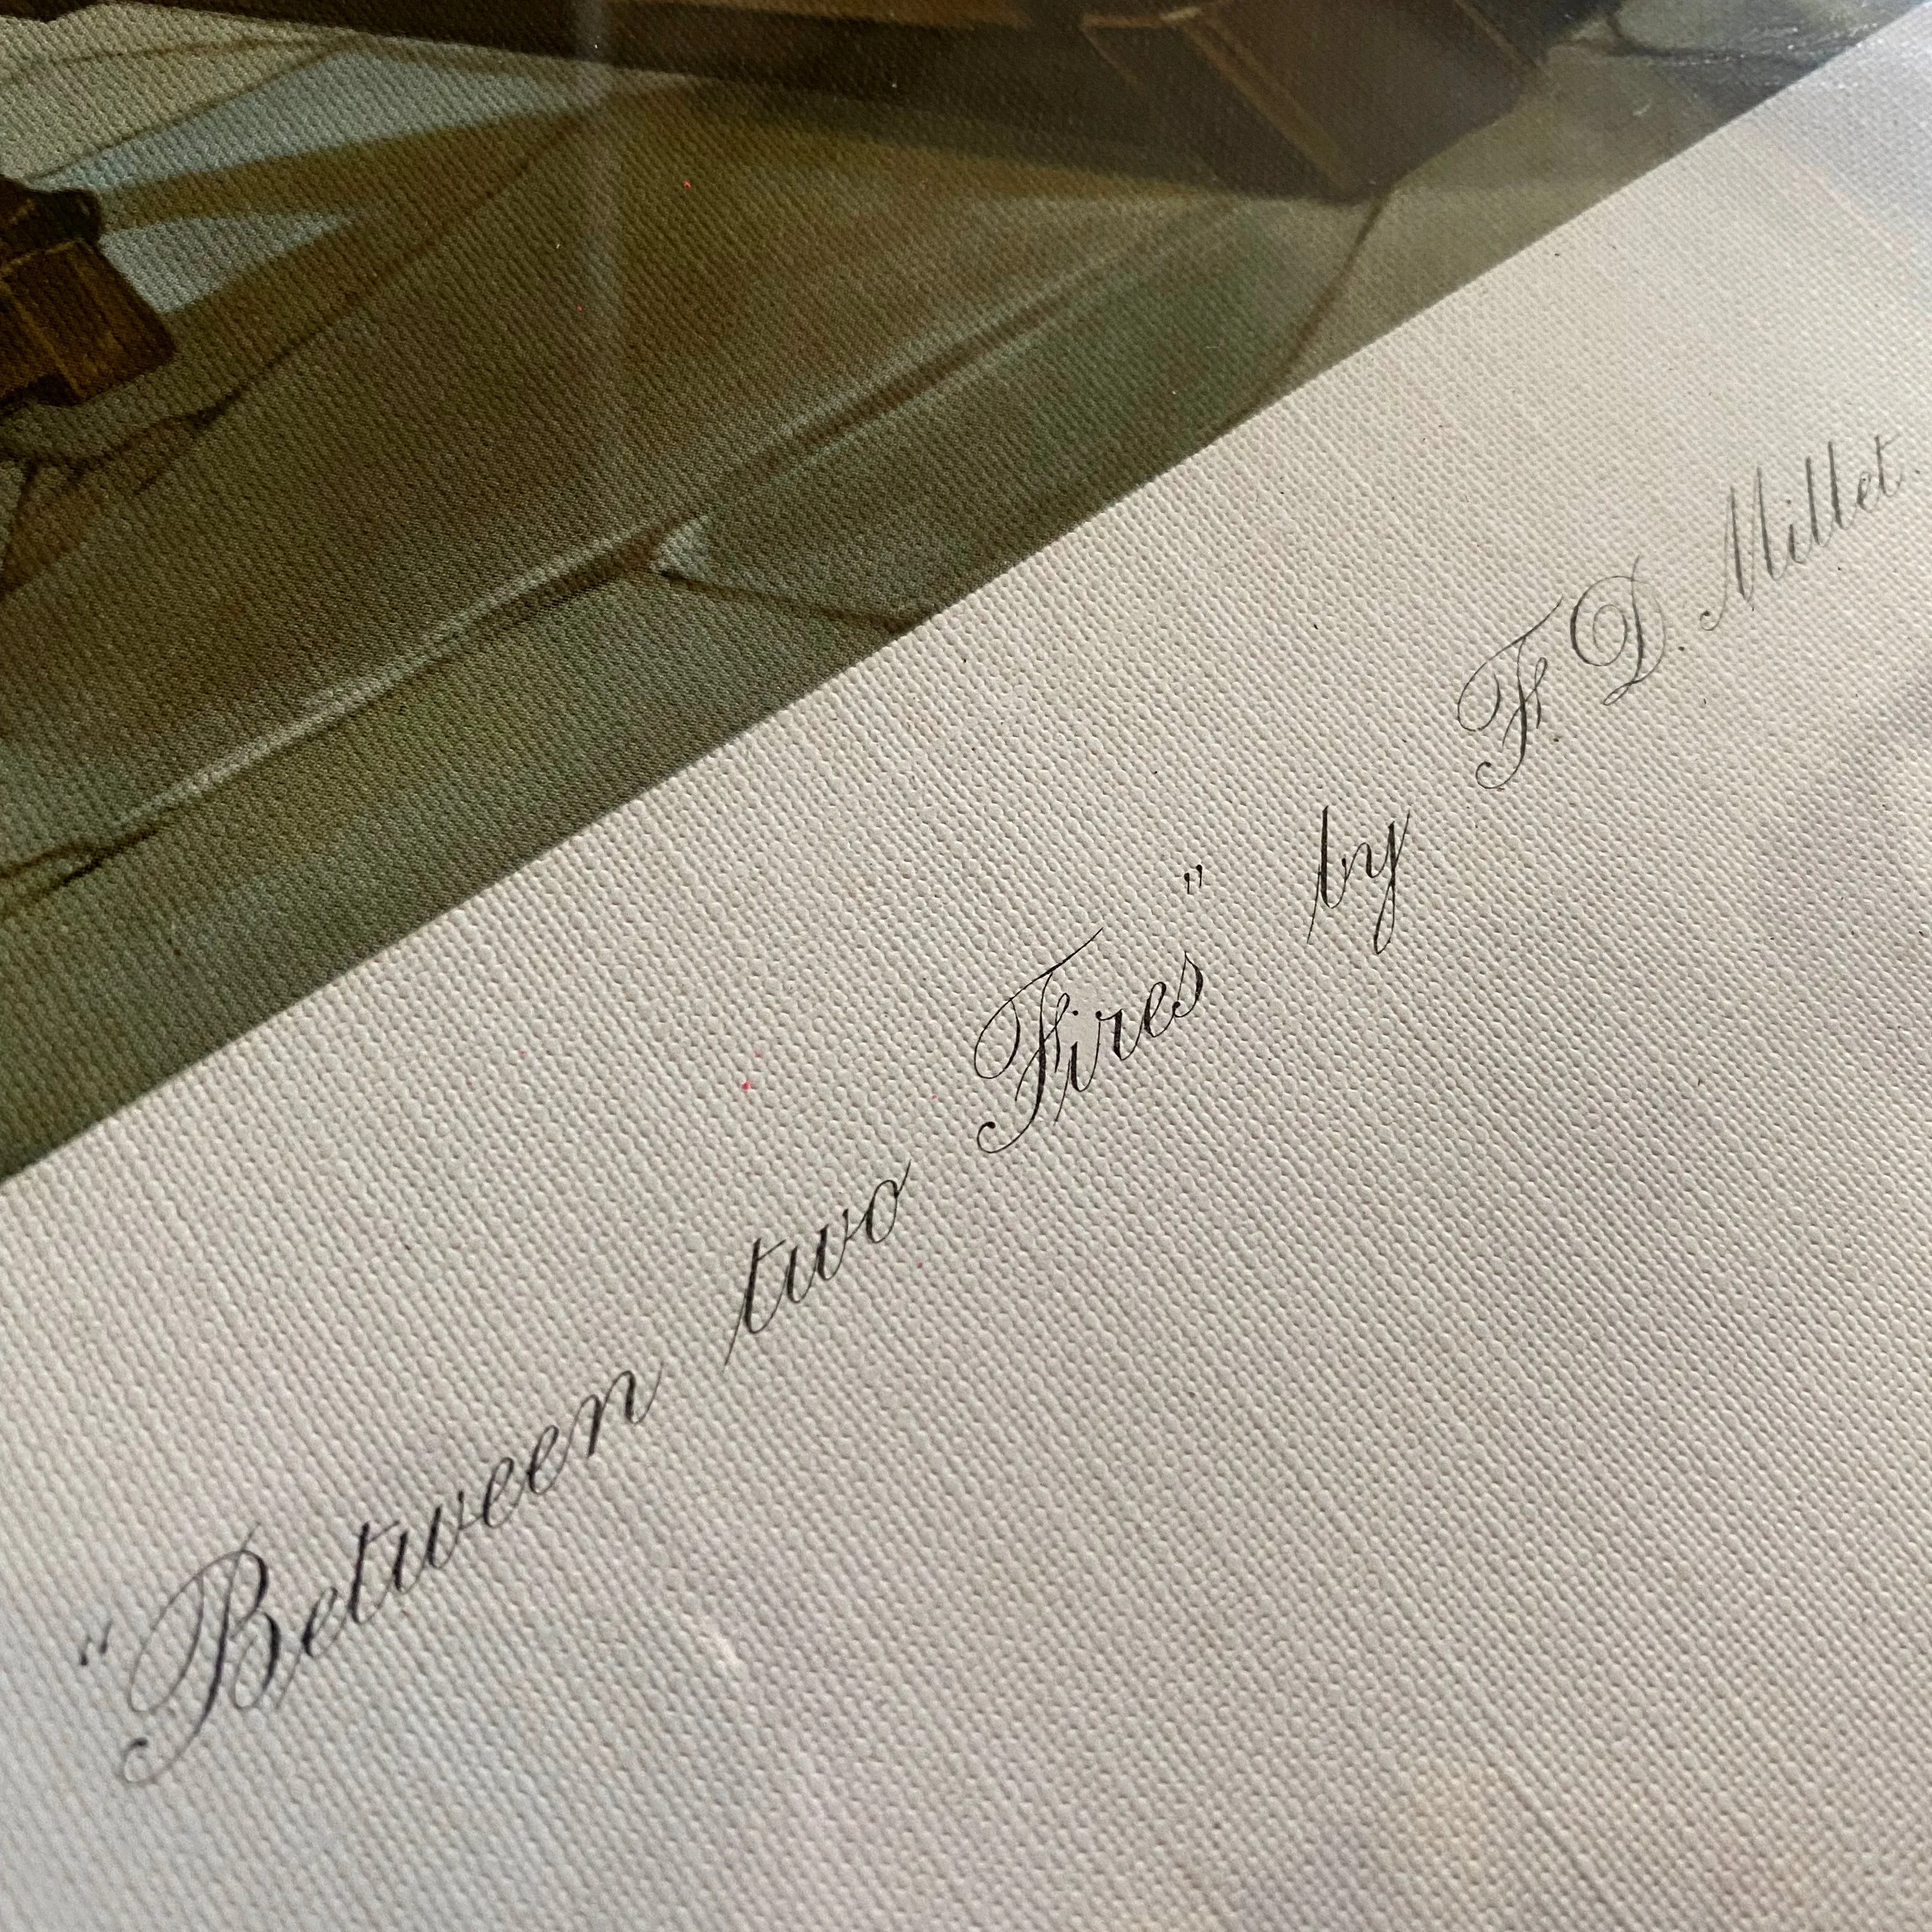 "Between two Fires" by F. D. Millet.